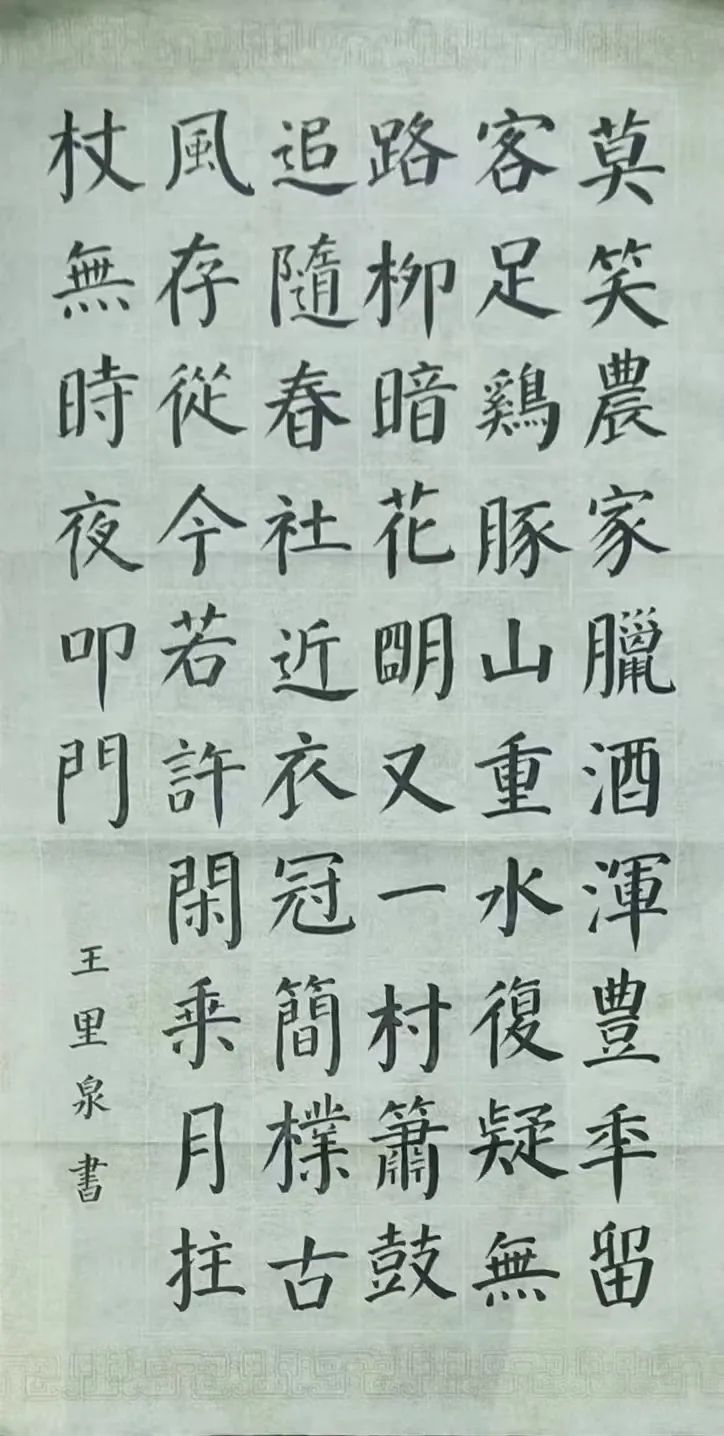 莫笑農家臘酒渾豊年留
客足鷄豚山重水復疑無
路柳暗花明又一村簫鼓
追隨春社近衣冠簡樸古
風存從今若許閑乘月拄
杖無時夜叩門
王里泉書